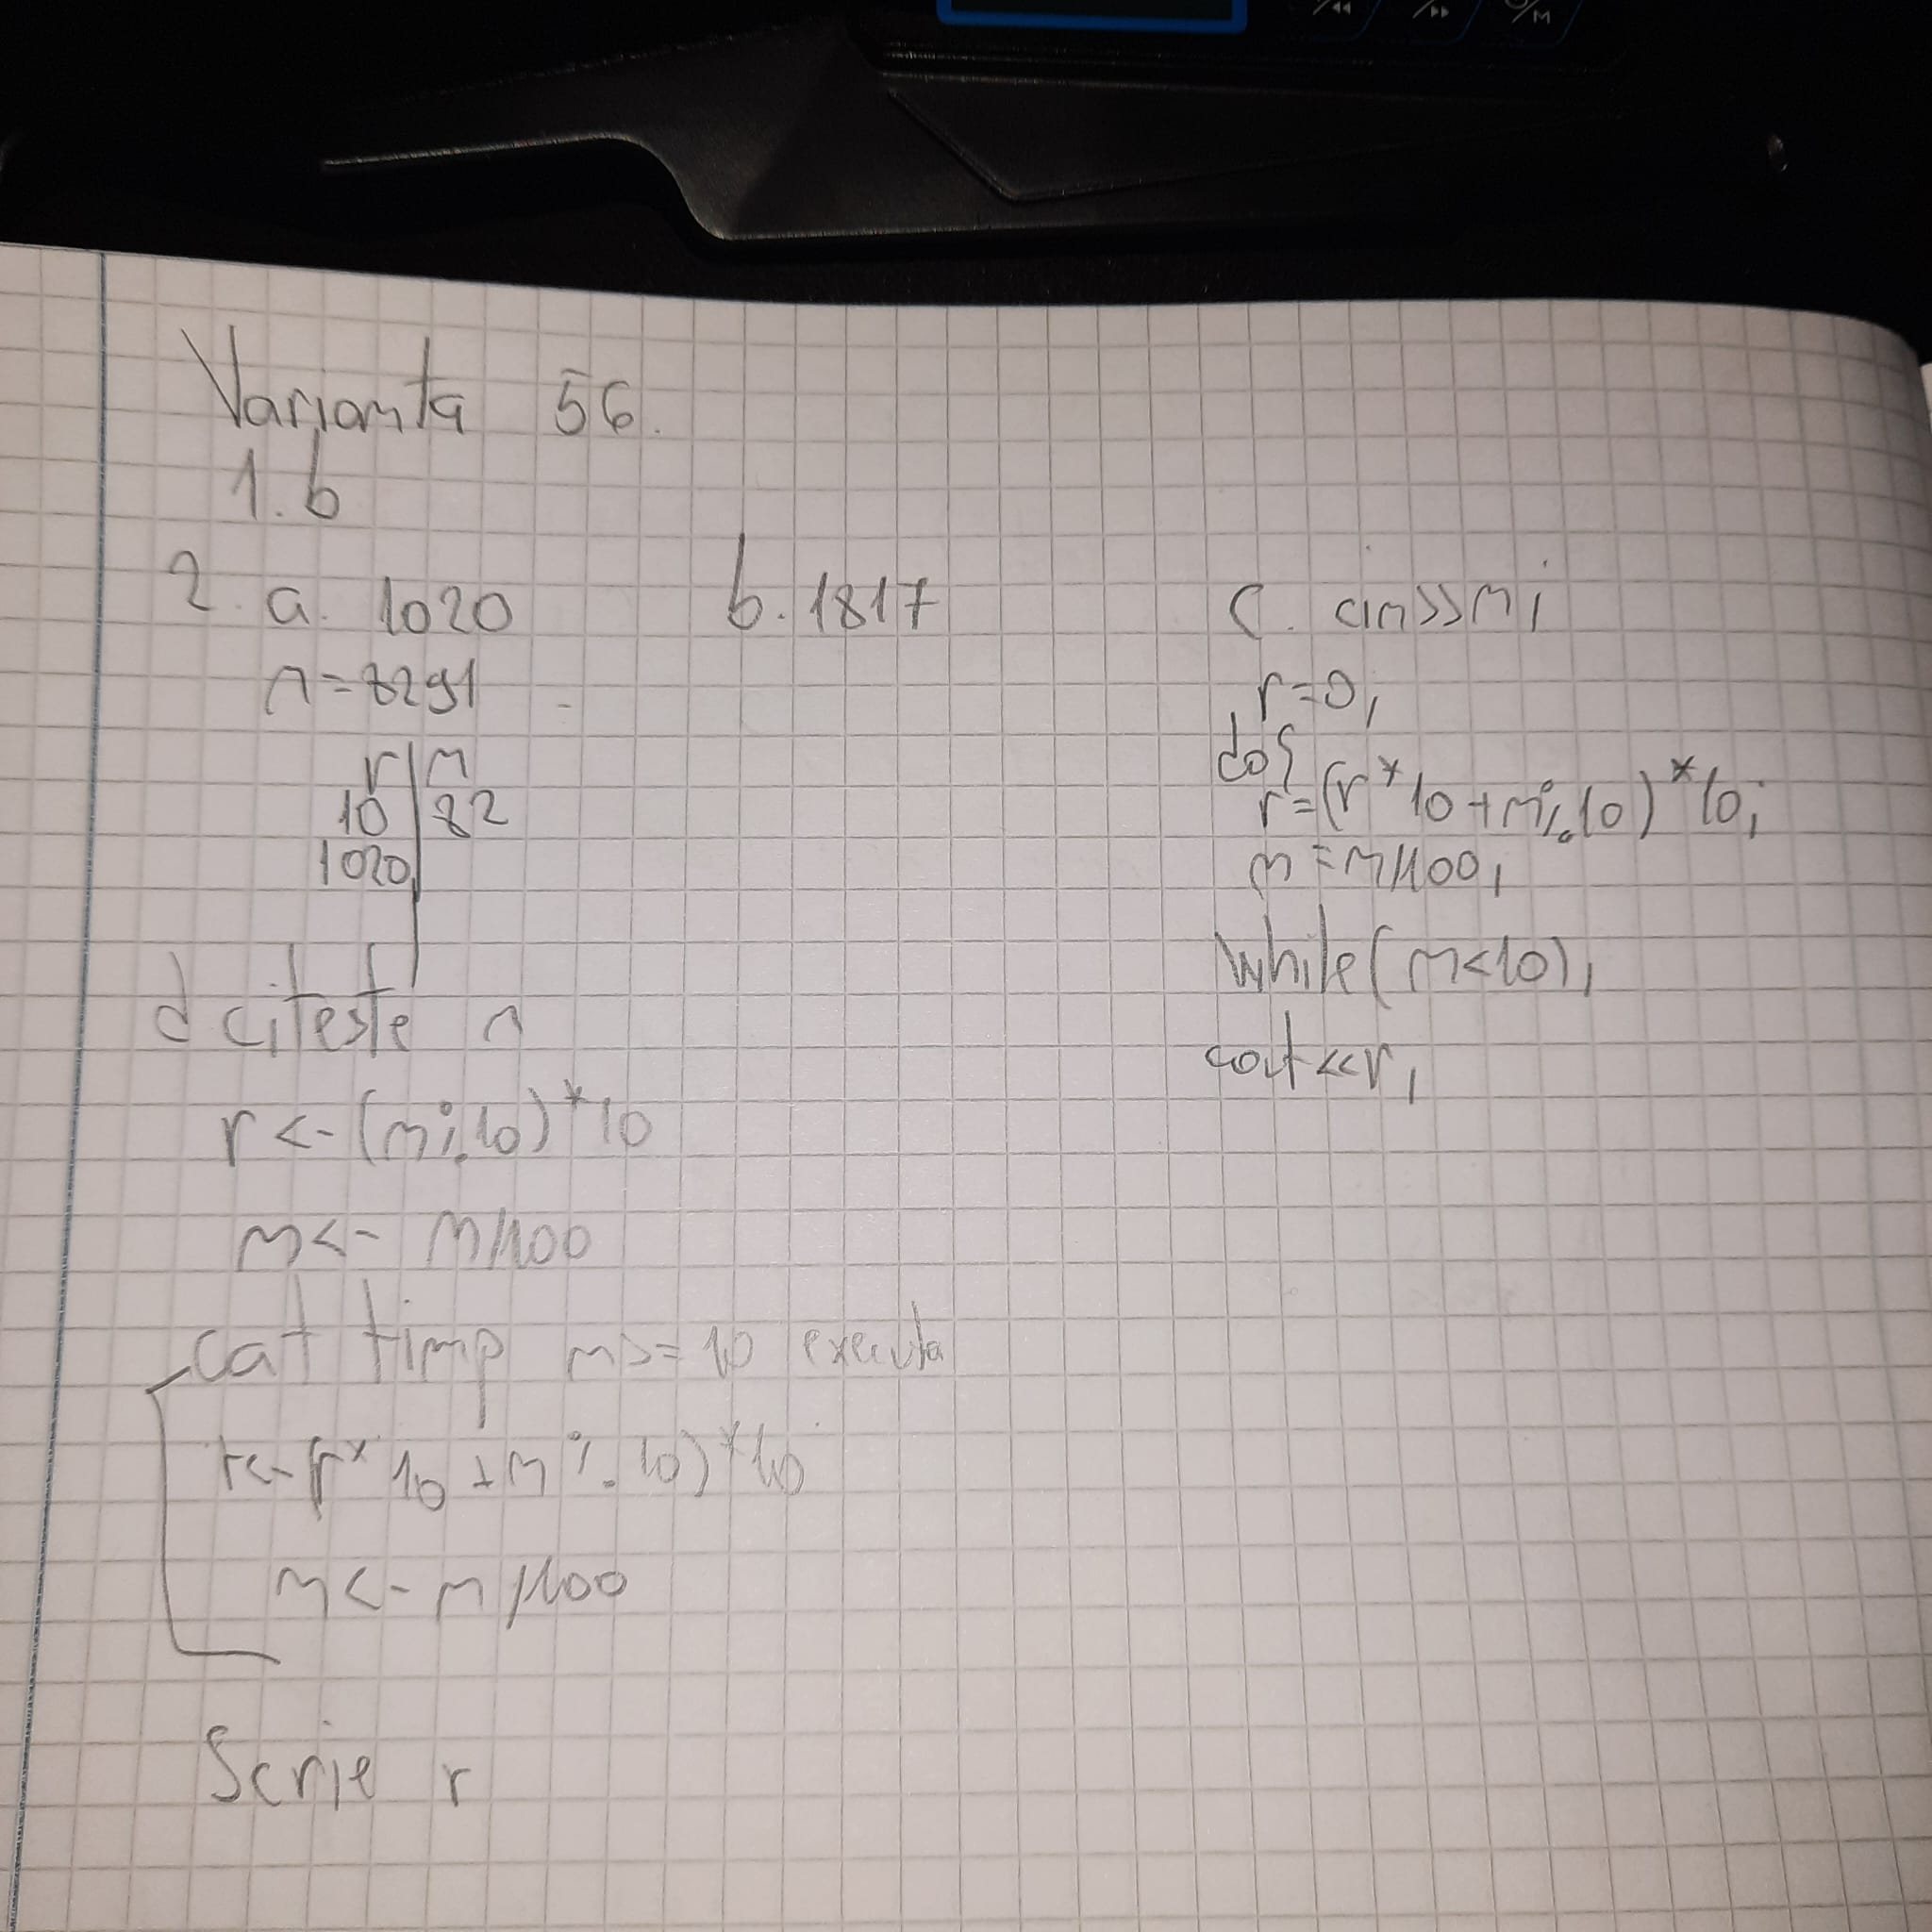 Varianta 56.
1. b
2. a. 1020
n=8291
r | n
10 | 82
1020
b. 1817
c. cin>>n;
r=0;
do{
r=(r*10+n%10)*10;
n=n/100;
while(n<10);
cout<<r;
d citeste n
r<-(n%10)*10
n<- n/100
cat timp n>=10 executa
r<-(r*10+n%10)*10
n<-n/100
Scrie r